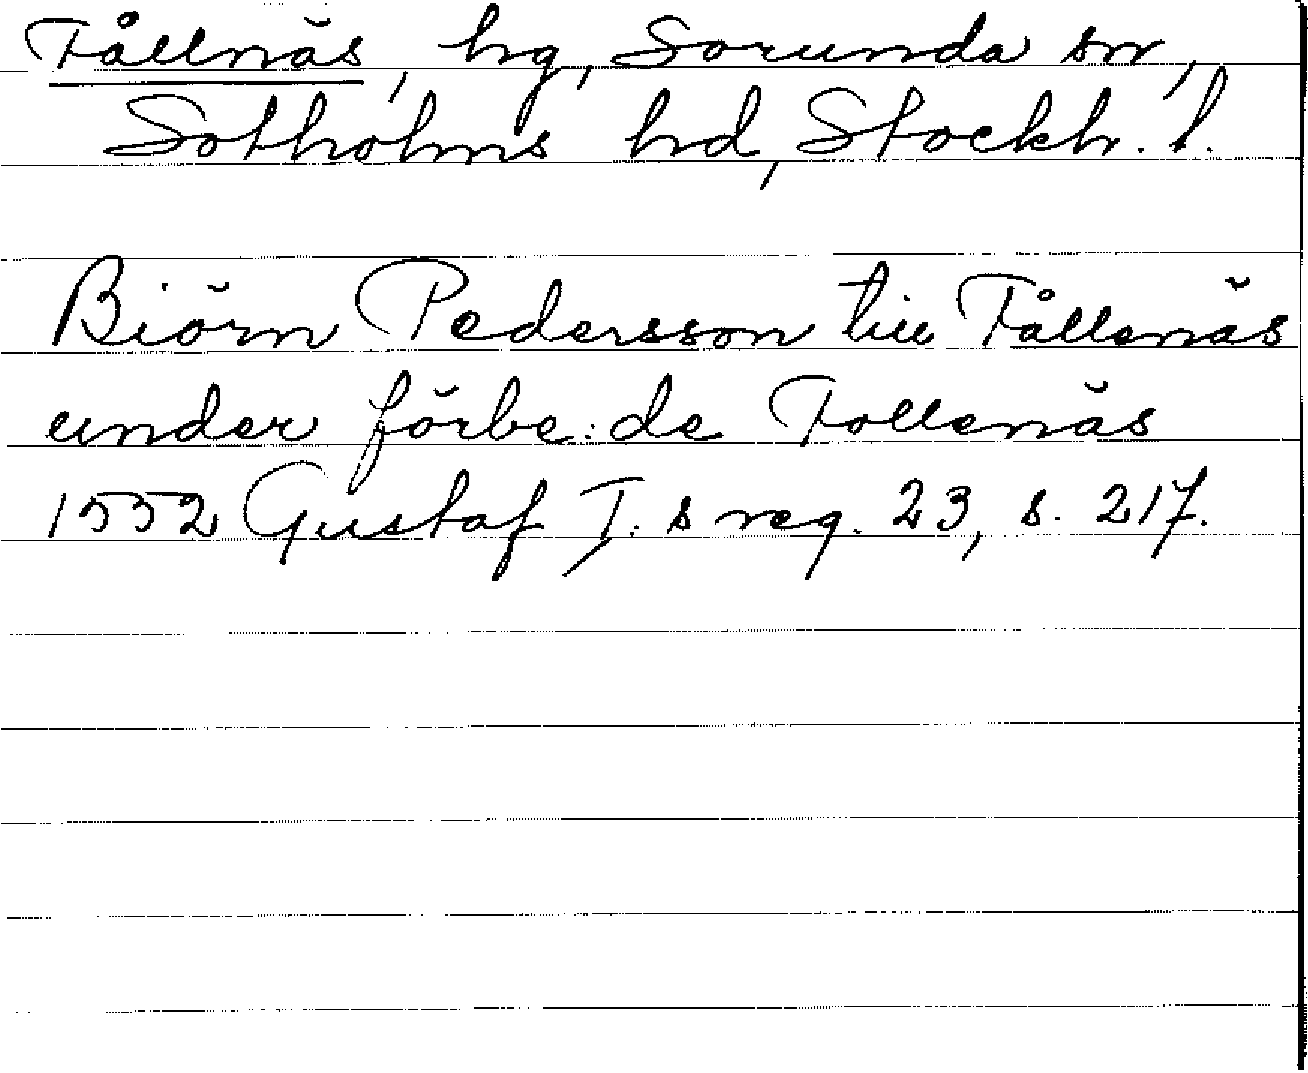 Fållnäs, hg, Sorunda sn,
Sotholms hd, Stockh. l.
Biörn Pedersson till Fållenäs
under förbe: de Follenäs
1552 Gustaf I: s reg. 23, s. 217.